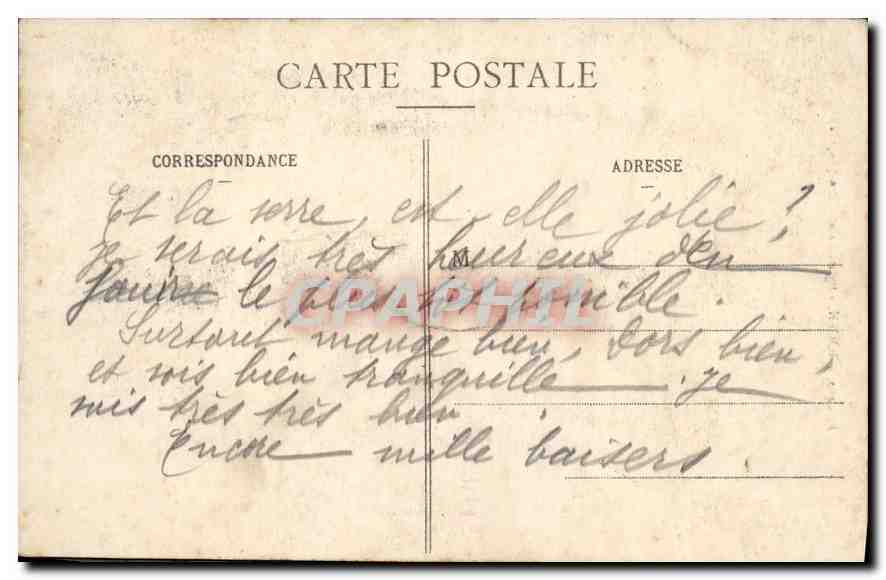 CARTE POSTALE
CORRESPONDANCE
ADRESSE
Et la serre, est-elle jolie ?
je serais très heureux d'en
M
jouir le plus tôt possible.
CPAPHIL
Surtout mange bien, dors bien,
et sois bien tranquille. je
suis très très bien.
Encore mille baisers.